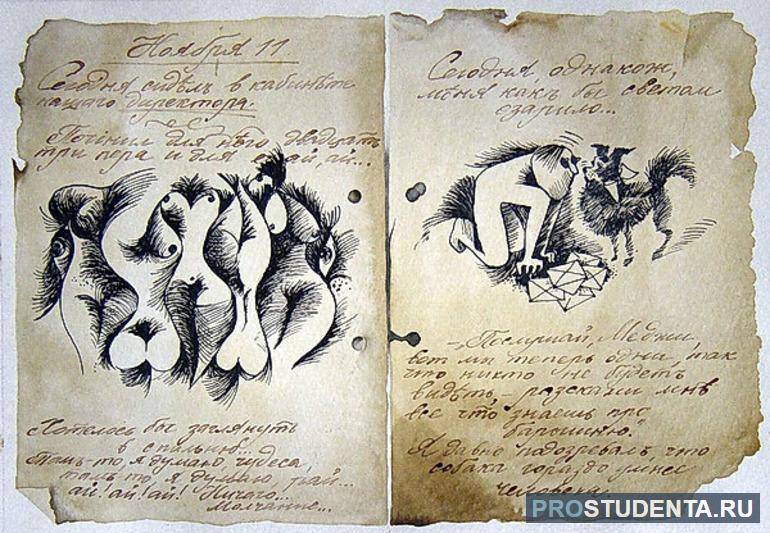 Ноября 11
Сегодня сидѣлъ в кабинѣте
нашаго директора.
Починил для него двадцать
три пера и для ай, ай...
Хотелось бы заглянуть
в спальню...
Тамъ-то, я думаю, чудеса,
тамъ-то, я думаю, рай...
ай! ай! ай! Ничего...
Молчание...
Сегодня, однакож,
меня какъ бы светом
озарило...
– „Послушай, Меджи,
вот мы теперь одни, так
что никто не будетъ
видѣть, – разскажи мнѣ
все что знаешь про
барышню."
Я давно подозревалъ, что
собака гораздо умнее
человека.
PROSTUDENTA.RU